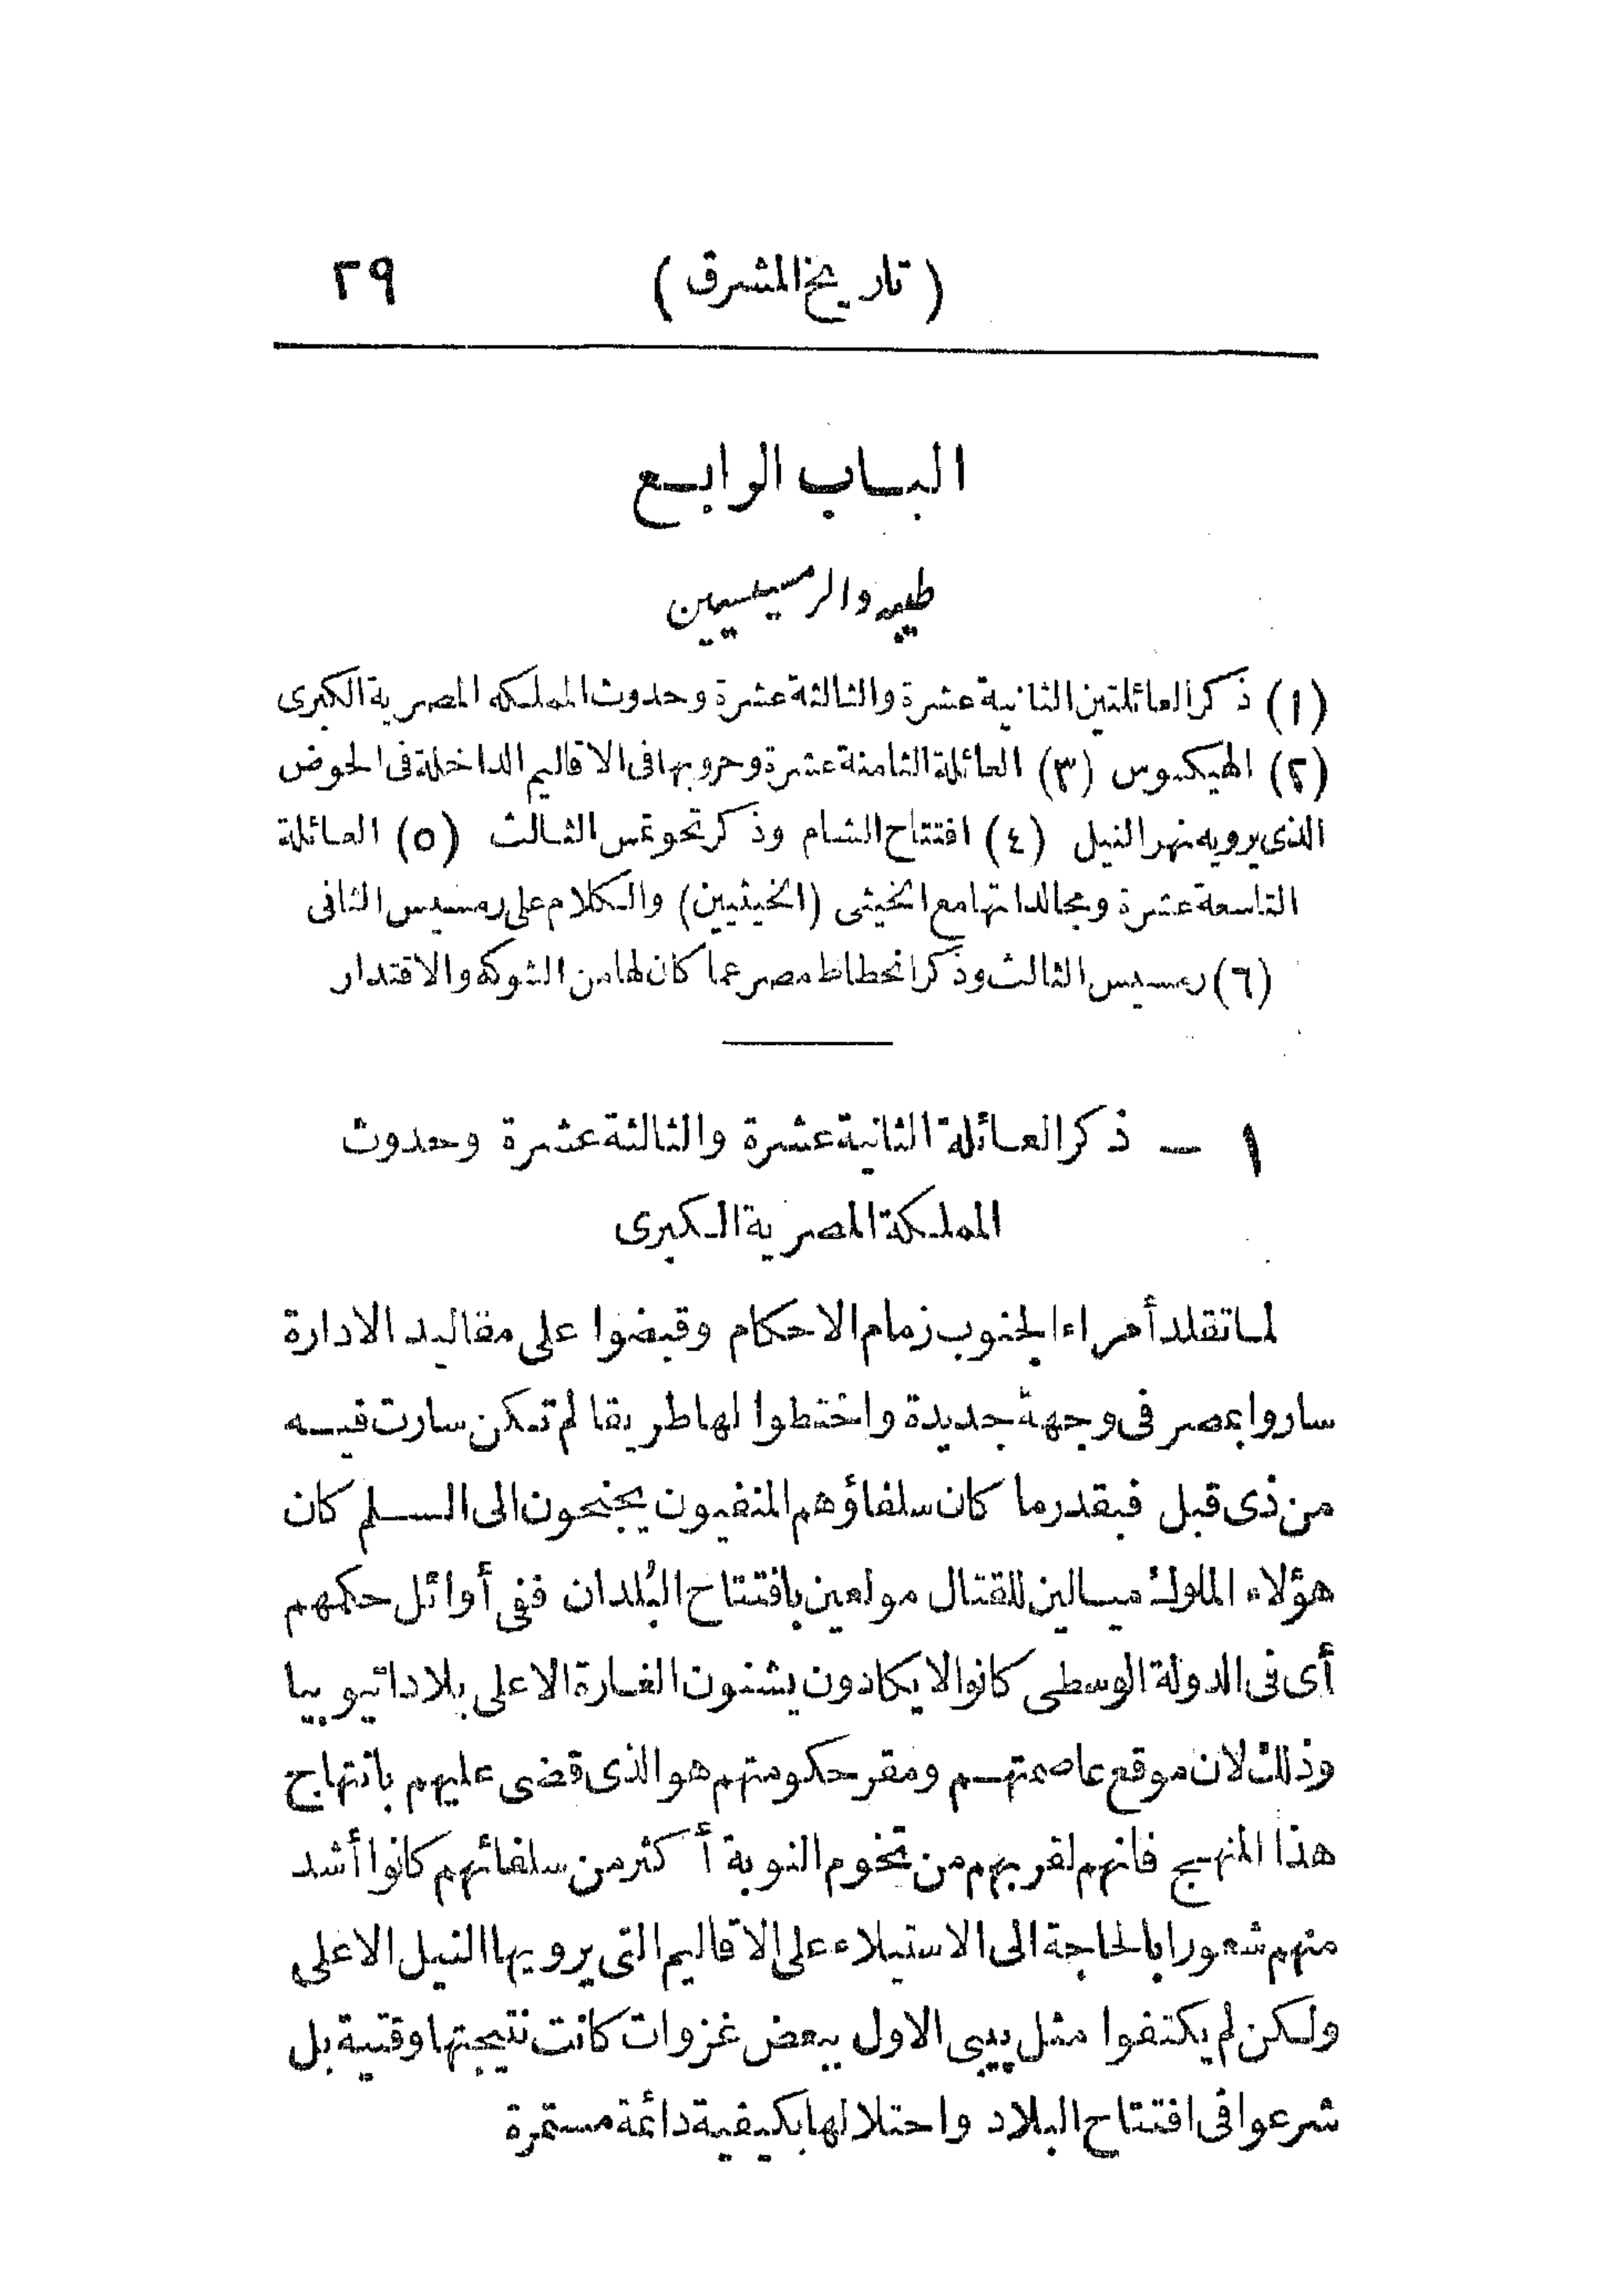 ( تاريخ المشرق ) ٢٩
الباب الرابع
طيبه والرمسيسيين
(١) ذكر العائلتين الثانية عشرة والثالثة عشرة وحدوث المملكه المصرية الكبرى
(٢) الهيكسوس (٣) العائلة الثامنة عشرة وحروبها فى الاقاليم الداخلة فى الحوض
الذى يرويه نهر النيل (٤) افتتاح الشام وذكر تحوتمس الثالث (٥) العائلة
التاسعة عشرة ومجالداتها مع الخيثى (الخيثيين) والكلام على رمسيس الثانى
(٦) رمسيس الثالث وذكر انحطاط مصر عما كان لها من الشوكه والاقتدار
١ – ذكر العائلة الثانية عشرة والثالثة عشرة وحدوث
المملكة المصرية الكبرى
لما تقلد أمراء الجنوب زمام الاحكام وقبضوا على مقاليد الادارة
ساروا بمصر فى وجهة جديدة واختطوا لها طريقا لم تكن سارت فيه
من ذى قبل فبقدر ما كان سلفاؤهم المنفيون يجنحون الى السلم كان
هؤلاء الملوك ميالين للقتال مولعين بافتتاح البُلدان ففى أوائل حكمهم
أى فى الدولة الوسطى كانوا لا يكادون يشنون الغارة الا على بلاد اتيوپيا
وذلك لان موقع عاصمتهم ومقر حكومتهم هو الذى قضى عليهم بانتهاج
هذا المنهج فانهم لقربهم من تخوم النوبة أكثر من سلفائهم كانوا أشد
منهم شعورا بالحاجة الى الاستيلاء على الاقاليم التى يرويها النيل الاعلى
ولكن لم يكتفوا مثل پيپى الاول ببعض غزوات كانت نتيجتها وقتية بل
شرعوا فى افتتاح البلاد واحتلالها بكيفية دائمة مستمرة